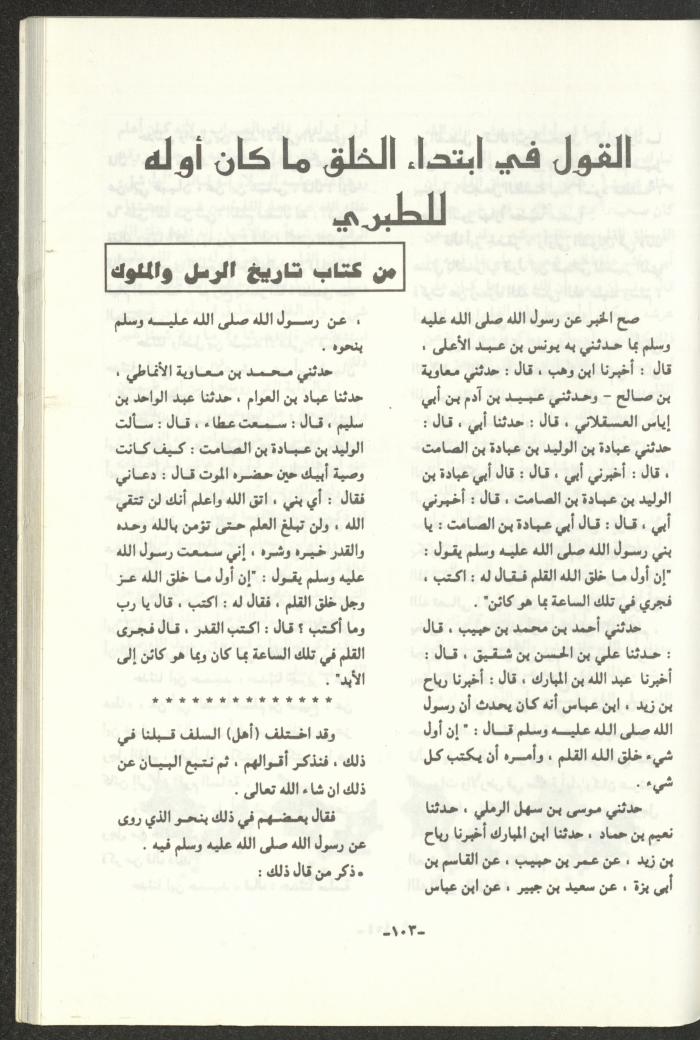 القول في ابتداء الخلق ما كان أوله
للطبري
من كتاب تاريخ الرسل والملوك
صح الخبر عن رسول الله صلى الله عليه
وسلم بما حدثني به يونس بن عبد الأعلى ،
قال : أخبرنا ابن وهب ، قال : حدثني معاوية
بن صالح - وحدثني عبيد بن آدم بن أبي
إياس العسقلاني ، قال : حدثنا أبي ، قال :
حدثني عبادة بن الوليد بن عبادة بن الصامت
، قال : أخبرني أبي ، قال : قال أبي عبادة بن
الوليد بن عبادة بن الصامت ، قال : أخبرني
أبي ، قال : قال أبي عبادة بن الصامت : يا
بني رسول الله صلى الله عليه وسلم يقول :
"إن أول ما خلق الله القلم فقال له : اكتب ،
فجري في تلك الساعة بما هو كائن" .
حدثني أحمد بن محمد بن حبيب ، قال
: حدثنا علي بن الحسن بن شقيق ، قال :
أخبرنا عبد الله بن المبارك ، قال : أخبرنا رباح
بن زيد ، ابن عباس أنه كان يحدث أن رسول
الله صلى الله عليه وسلم قال : " إن أول
شيء خلق الله القلم ، وأمره أن يكتب كل
شيء .
حدثني موسى بن سهل الرملي ، حدثنا
نعيم بن حماد ، حدثنا ابن المبارك أخبرنا رباح
بن زيد ، عن عمر بن حبيب ، عن القاسم بن
أبي بزة ، عن سعيد بن جبير ، عن ابن عباس
، عن رسول الله صلى الله عليه وسلم
بنحوه .
حدثني محمد بن معاوية الأنماطي ،
حدثنا عباد بن العوام ، حدثنا عبد الواحد بن
سليم ، قال : سمعت عطاء ، قال : سألت
الوليد بن عبادة بن الصامت : كيف كانت
وصية أبيك حين حضره الموت قال : دعاني
فقال : أي بني ، اتق الله واعلم أنك لن تتقي
الله ، ولن تبلغ العلم حتى تؤمن بالله وحده
والقدر خيره وشره ، إني سمعت رسول الله
عليه وسلم يقول : "إن أول ما خلق الله عز
وجل خلق القلم ، فقال له : اكتب ، قال يا رب
وما أكتب ؟ قال : اكتب القدر ، قال فجرى
القلم في تلك الساعة بما كان وبما هو كائن إلى
الأبد" .
* * * * * * * * * * * * * *
وقد اختلف (أهل) السلف قبلنا في
ذلك ، فنذكر أقوالهم ، ثم نتبع البيان عن
ذلك ان شاء الله تعالى .
فقال بعضهم في ذلك بنحو الذي روى
عن رسول الله صلى الله عليه وسلم فيه .
• ذكر من قال ذلك :
-١٠٣-